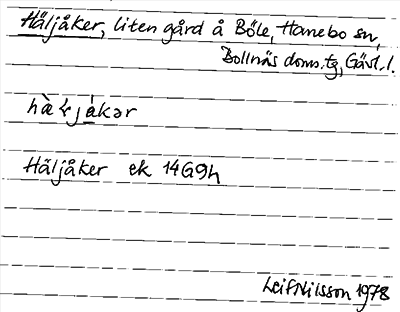 Häljåker, liten gård å Böle, Hanebo sn,
Bollnäs doms.tg, Gävl. l.
Häljåker ek 14G9h
Leif Nilsson 1978